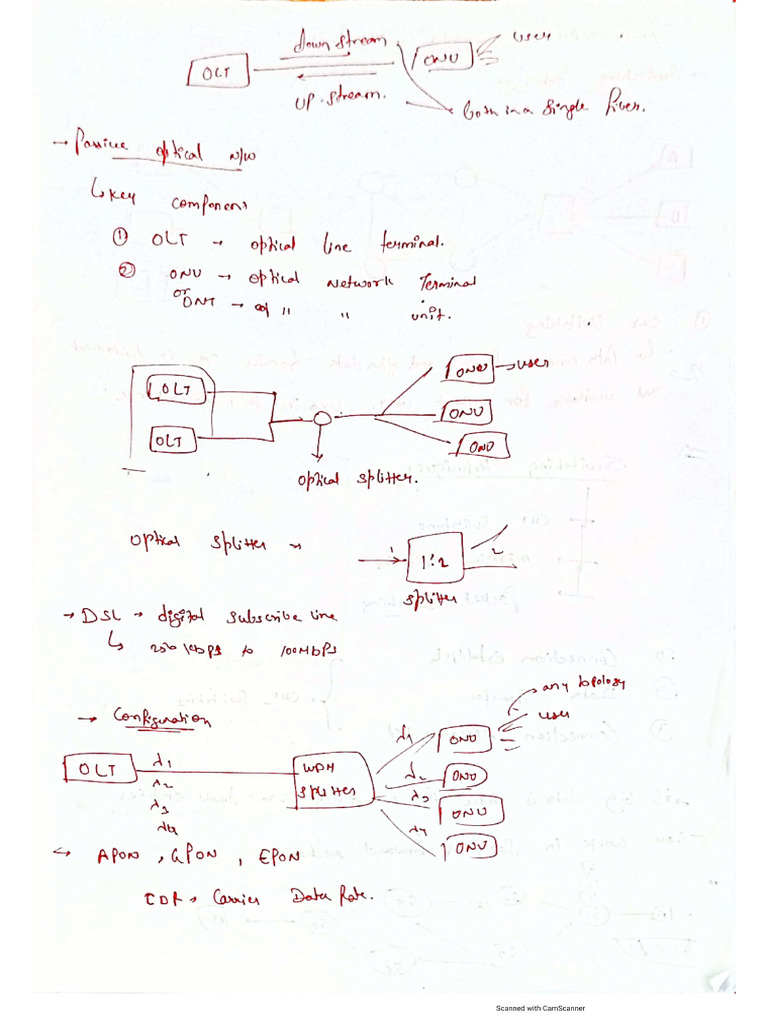 Down stream
user
OLT
ONU
UP.stream.
both in a single fiber.
→ Passive optical N/W
↳ Key component
① OLT → optical line terminal.
② ONU → optical Network Terminal
or
ONT → " " unit.
OLT
ONU → user
ONU
OLT
ONU
optical splitter.
optical splitter →
1
1:2
2
splitter
→ DSL → digital subscribe line
↳ 250 kbps to 100Mbps
→ any topology
→ Configuration
user
OLT
λ1
λ2
λ3
λ4
WDM
splitter
λ1
ONU
λ2
ONU
λ3
ONU
λ4
ONU
↳ APON, GPON, EPON
CDR → Carrier Data Rate.
Scanned with CamScanner